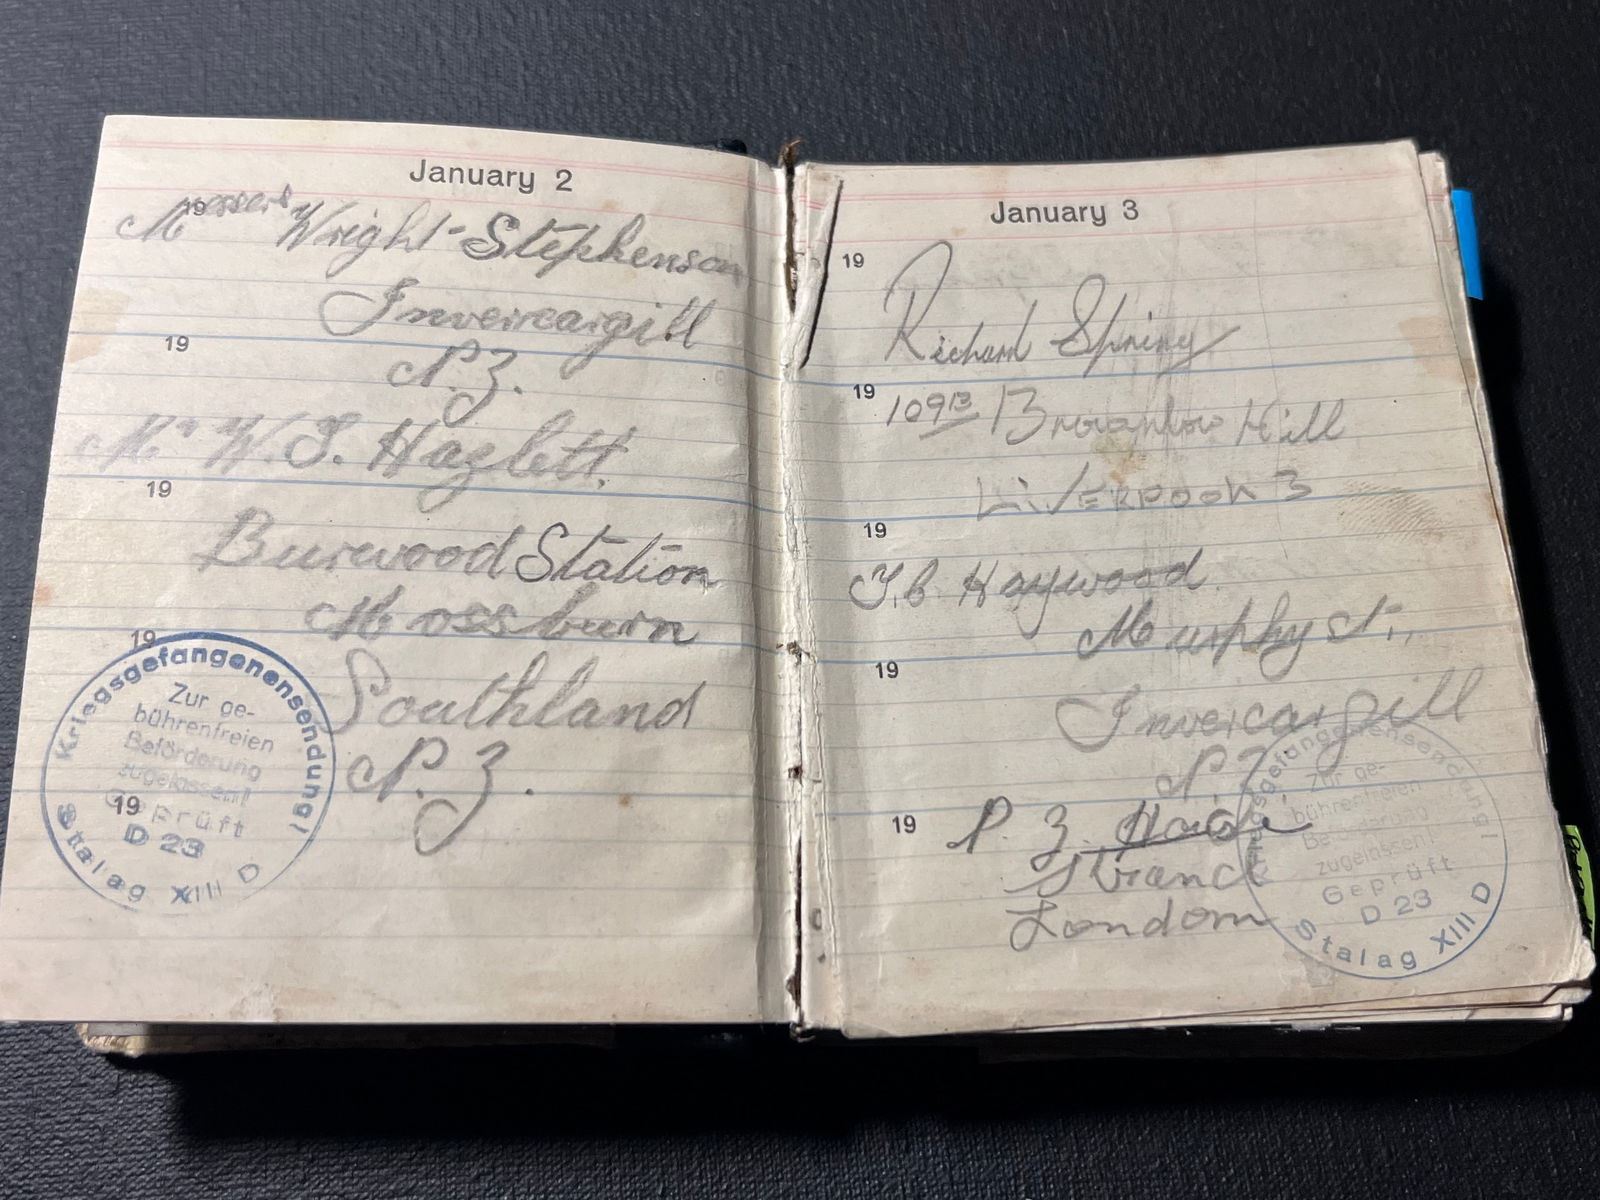 January 2
19
Messers Wright-Stephenson
Invercargill
19
N.Z.
Mr W.J. Hazlett.
19
Burwood Station
Mossburn
19
Southland
N.Z.
19
Kriegsgefangenensendung!
Zur ge-
bührenfreien
Beförderung
zugelassen!
Geprüft
D 23
Stalag XIII D
January 3
19
Richard Spring
19
109B Brownlow Hill
Liverpool 3
19
J.C. Haywood
Murphy st.,
19
Invercargill
N.Z.
19
N.Z.
Strand
London
Kriegsgefangenensendung!
Zur ge-
bührenfreien
Beförderung
zugelassen!
Geprüft
D 23
Stalag XIII D